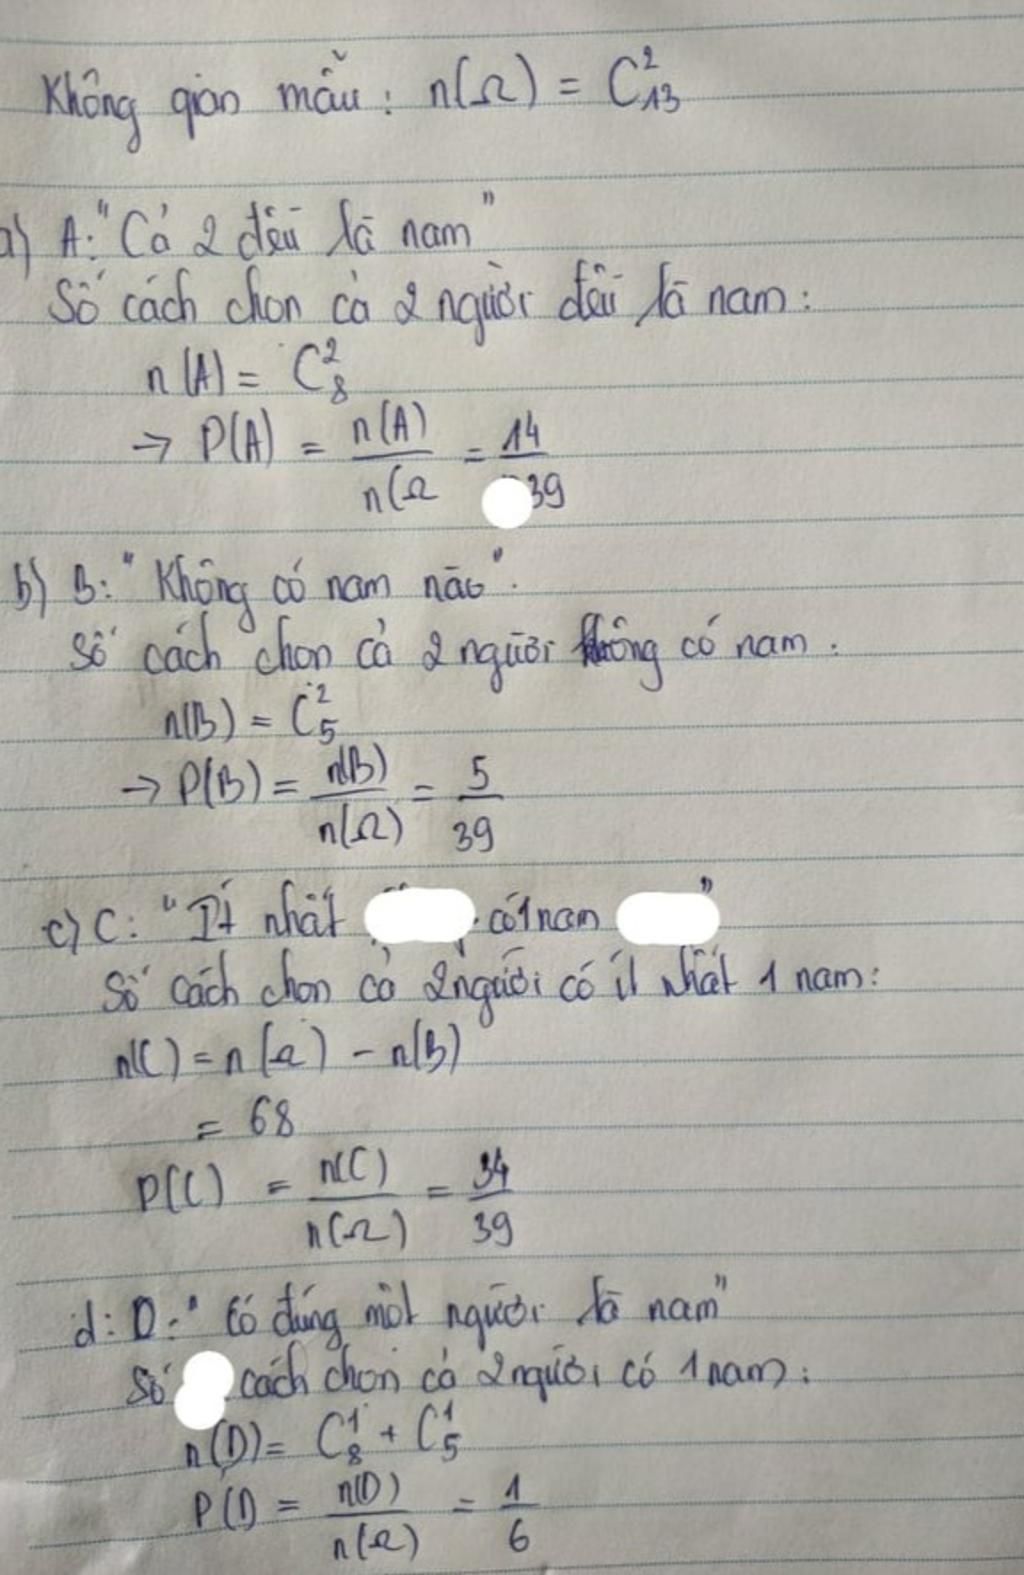 Không gian mẫu: n(Ω) = C²₁₃
a) A: "Cả 2 đều là nam"
Số cách chọn cả 2 người đều là nam:
n(A) = C²₈
→ P(A) = n(A)/n(Ω = 14/39
b) B: "Không có nam nào".
Số cách chọn cả 2 người không có nam:
n(B) = C²₅
→ P(B) = n(B)/n(Ω) = 5/39
c) C: "Ít nhất có 1 nam"
Số cách chọn cả 2 người có ít nhất 1 nam:
n(C) = n(Ω) - n(B)
= 68
P(C) = n(C)/n(Ω) = 34/39
d: D: "Có đúng một người là nam"
Số cách chọn cả 2 người có 1 nam:
n(D) = C¹₈ + C¹₅
P(D) = n(D)/n(Ω) = 1/6